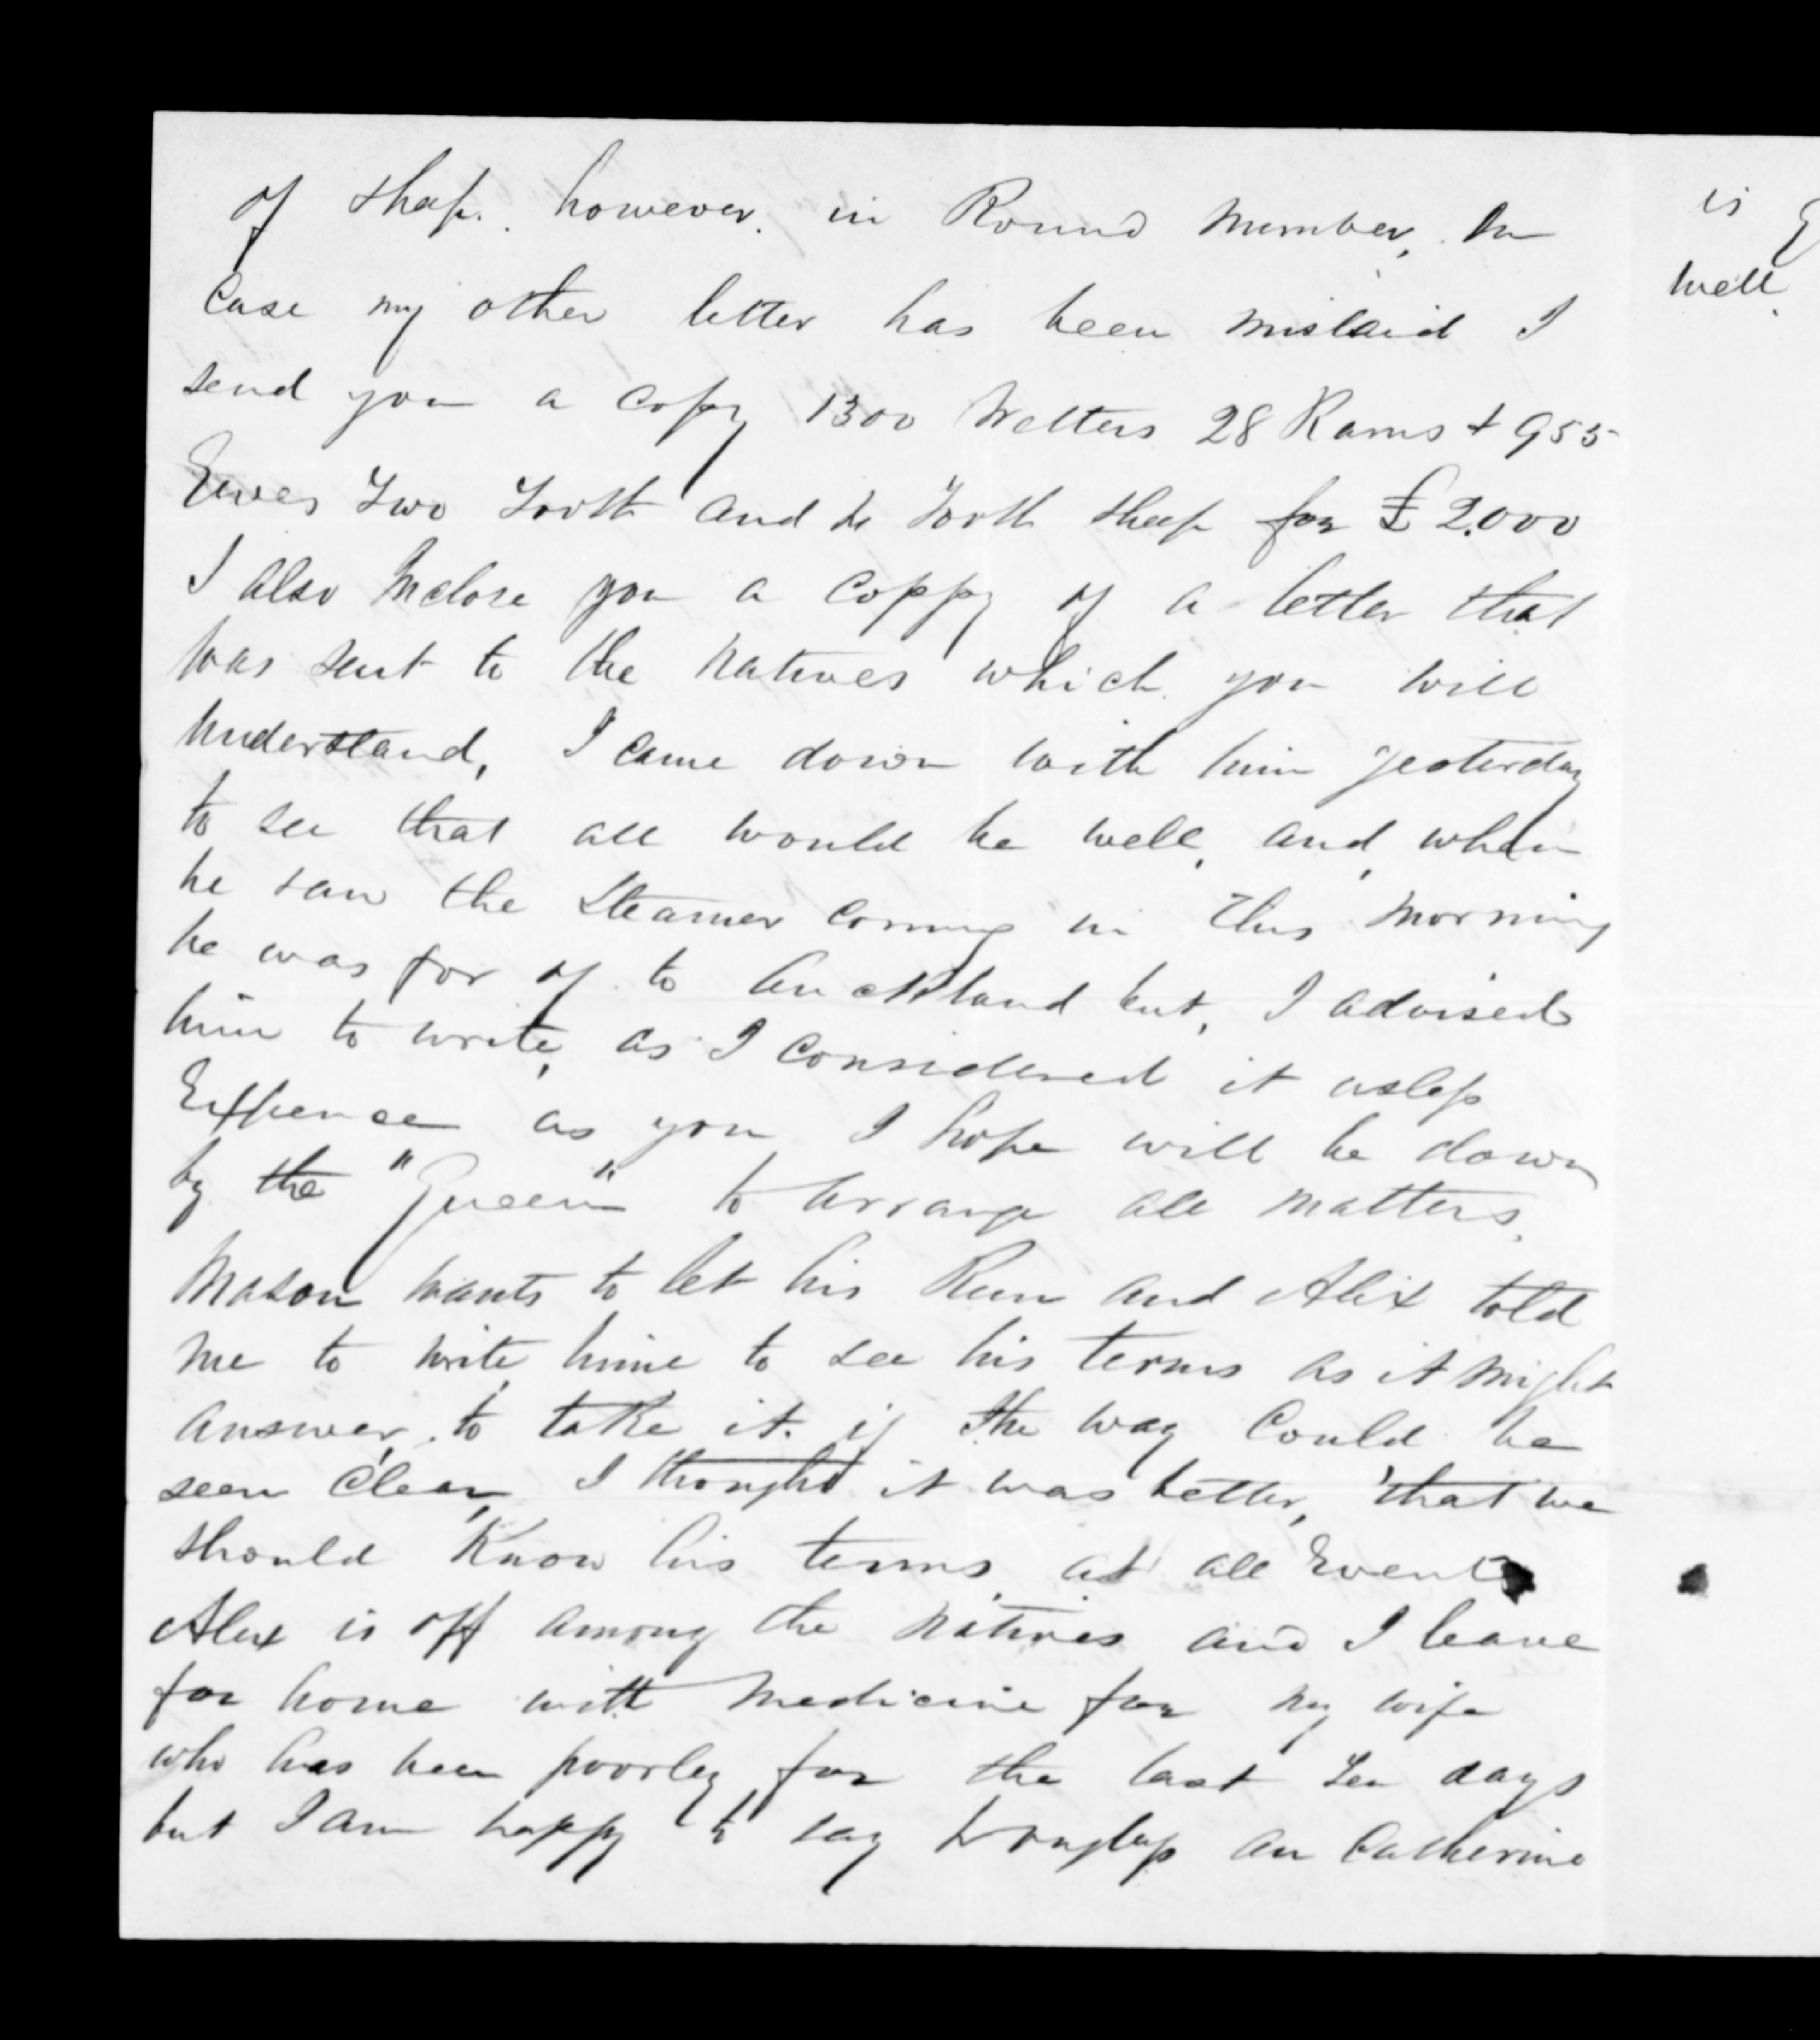 of sheep. however. in Round Number, In
Case my other letter has been mislaid I
send you a Copy 1300 Wetters 28 Rams + 955
Ewes Two Tooth and to Tooth sheep for £2.000
I also Inclose you a Coppy of a letter that
was sent to the Natives which you will
Understand, I came down with him yesterday
to see that all would be well, and, when
he saw the Steamer coming in this Morning
he was for of to Auckland but, I advised
him to write, as I Considered it usless
Expence as you I hope will be down
by the "Queen" to Arrange all Matters,
Mason wants to let his Run and Alix told
me to write hime to see his terms as it might
Answer, to take it. if the way Could be
seen Clear, I thought it was better, that we
should Know his terms, at all Events
Alex is off among the Natives and I leave
for home with Medicine for my wife
who has been poorley for the last Ten days
but I am happy to say Douglass an Catherine
is
well.